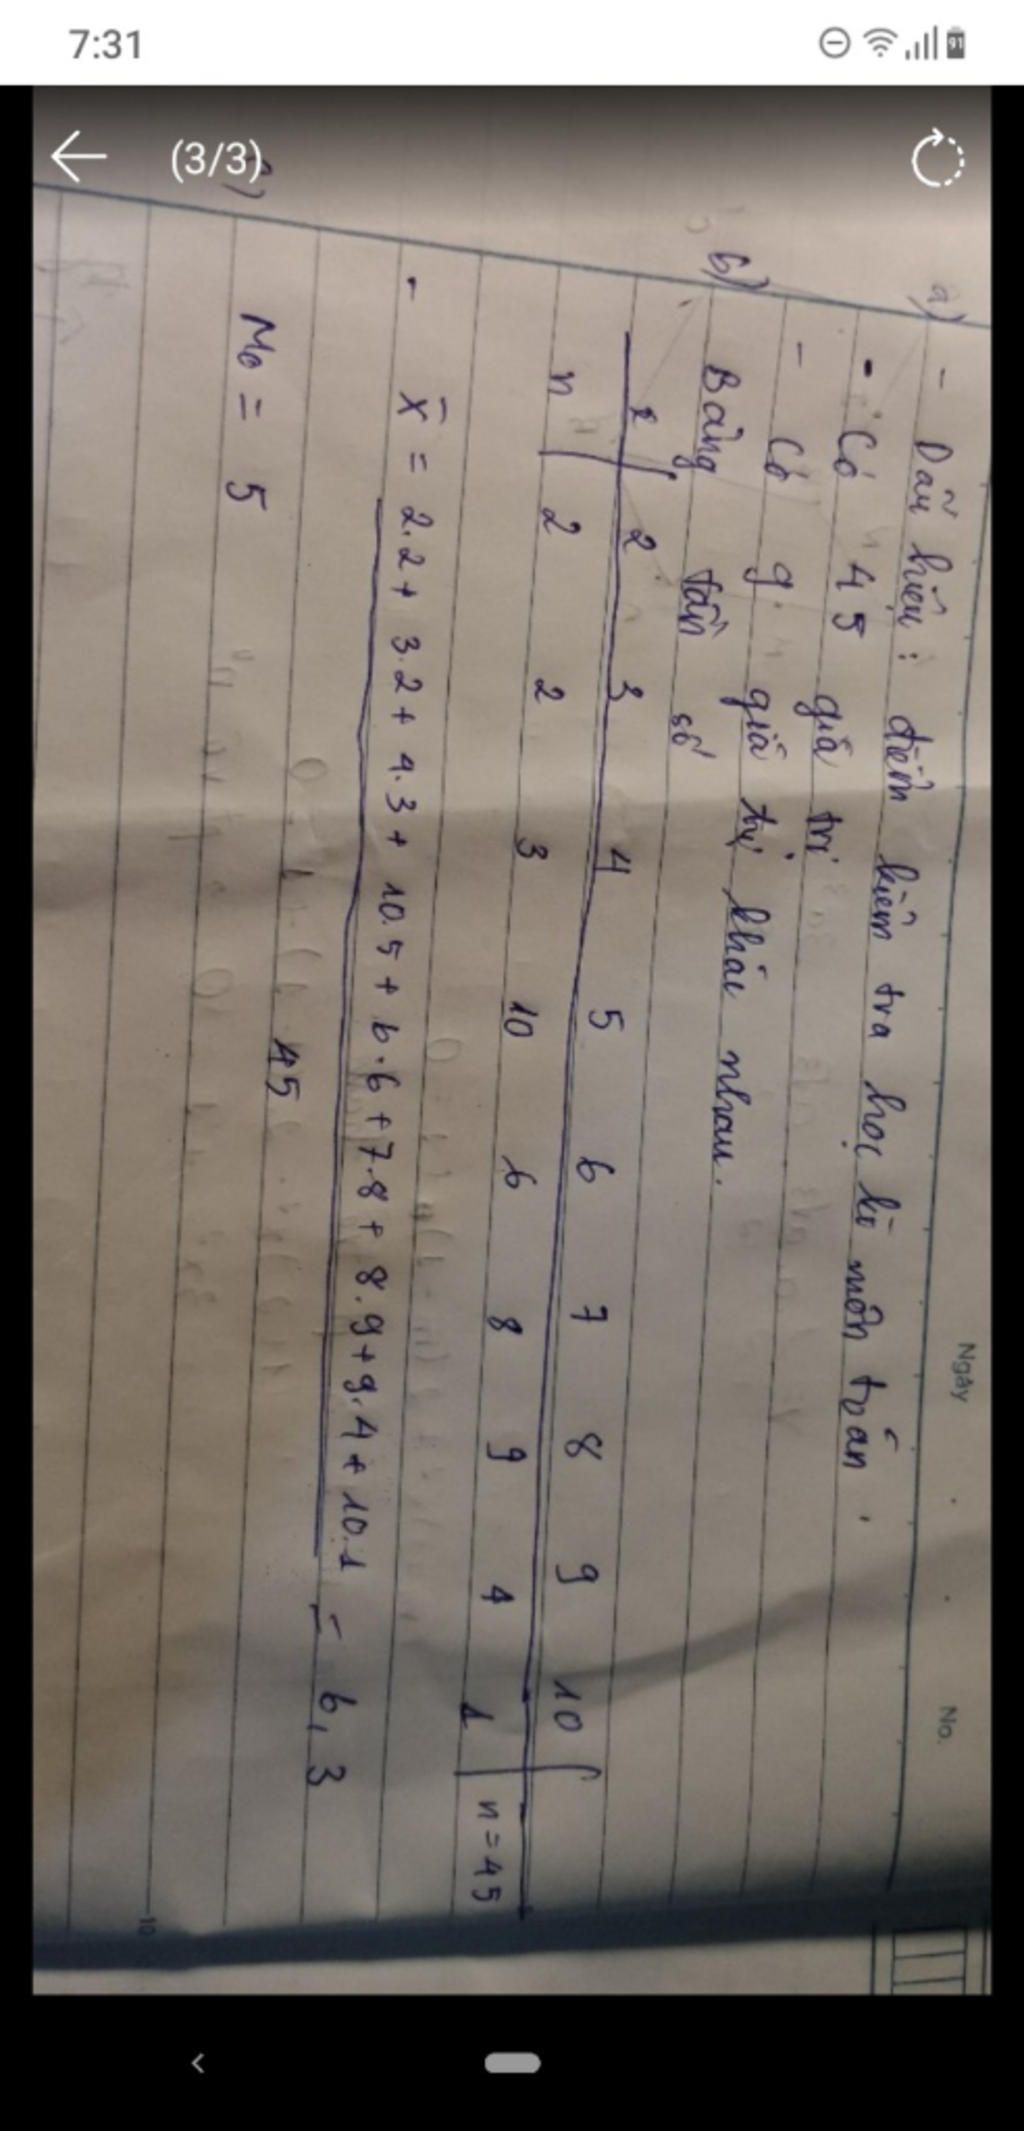 7:31
91
(3/3)
Ngày No.
a) - Dấu hiệu : điểm kiểm tra học kì môn toán .
- Có 45 giá trị
- Có 9 giá trị khác nhau.
b) Bảng tần số
x 2 3 4 5 6 7 8 9 10
n 2 2 3 10 6 8 9 4 1 n = 45
- X̄ = 2.2 + 3.2 + 4.3 + 10.5 + 6.6 + 7.8 + 8.9 + 9.4 + 10.1 = 6,3
45
M₀ = 5
10